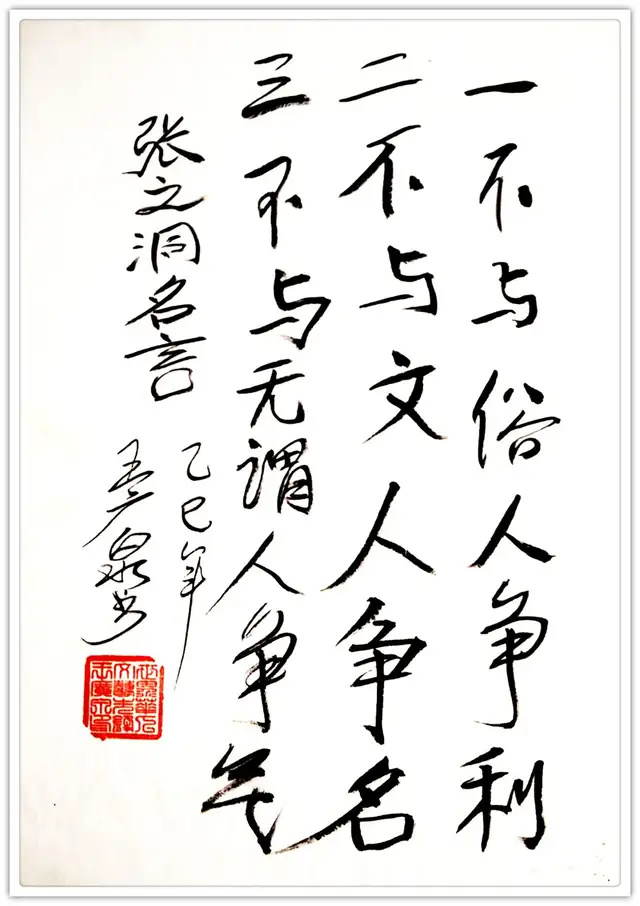 一不与俗人争利
二不与文人争名
三不与无谓人争气
张之洞名言
乙巳年
王广泉书